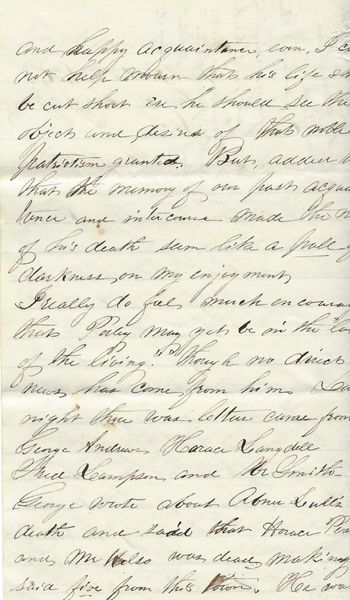 and happy acquaintance, even, I c
not help mourn that his life sh
be cut short ere he should see the
object and desires of that noble
patriotism granted. But, added
that the memory of our past acqua
tance and intercourse made the n
of his death seem like a pall of
darkness on my enjoyment
I really do feel much encoura
that may yet be in the "la
of the living." Though no direct
news has come from him La
night there was letters came from
George Andrews Horace Langdell
Fred Lampson and Mr Smith
George wrote about Abner Lull's
death and said that
and Mr was dead making
said five from this town. He wa